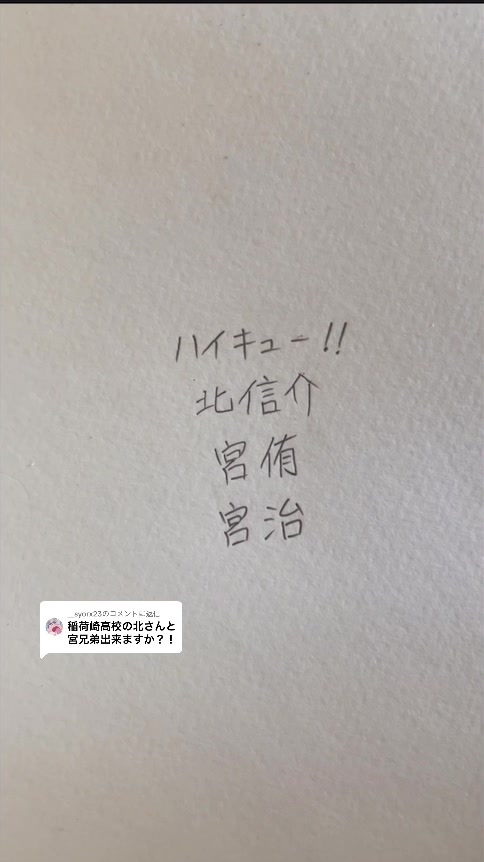 ハイキュー!!
北信介
宮侑
宮治
__syorx23のコメントに返信
稲荷崎高校の北さんと
宮兄弟出来ますか？！